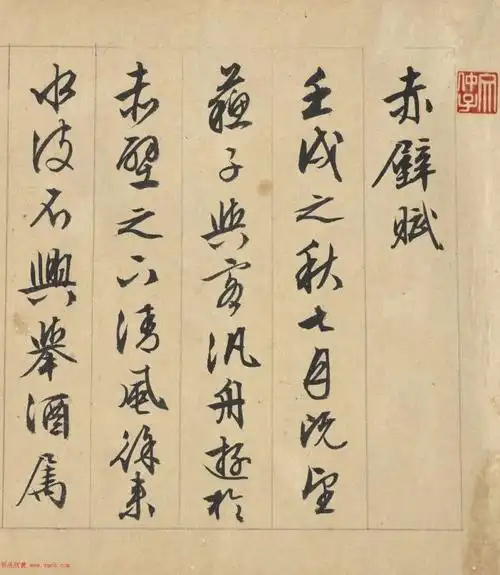 赤壁賦
壬戌之秋七月既望
蘇子與客汎舟遊於
赤壁之下清風徐來
水波不興舉酒属
www.yac8.com